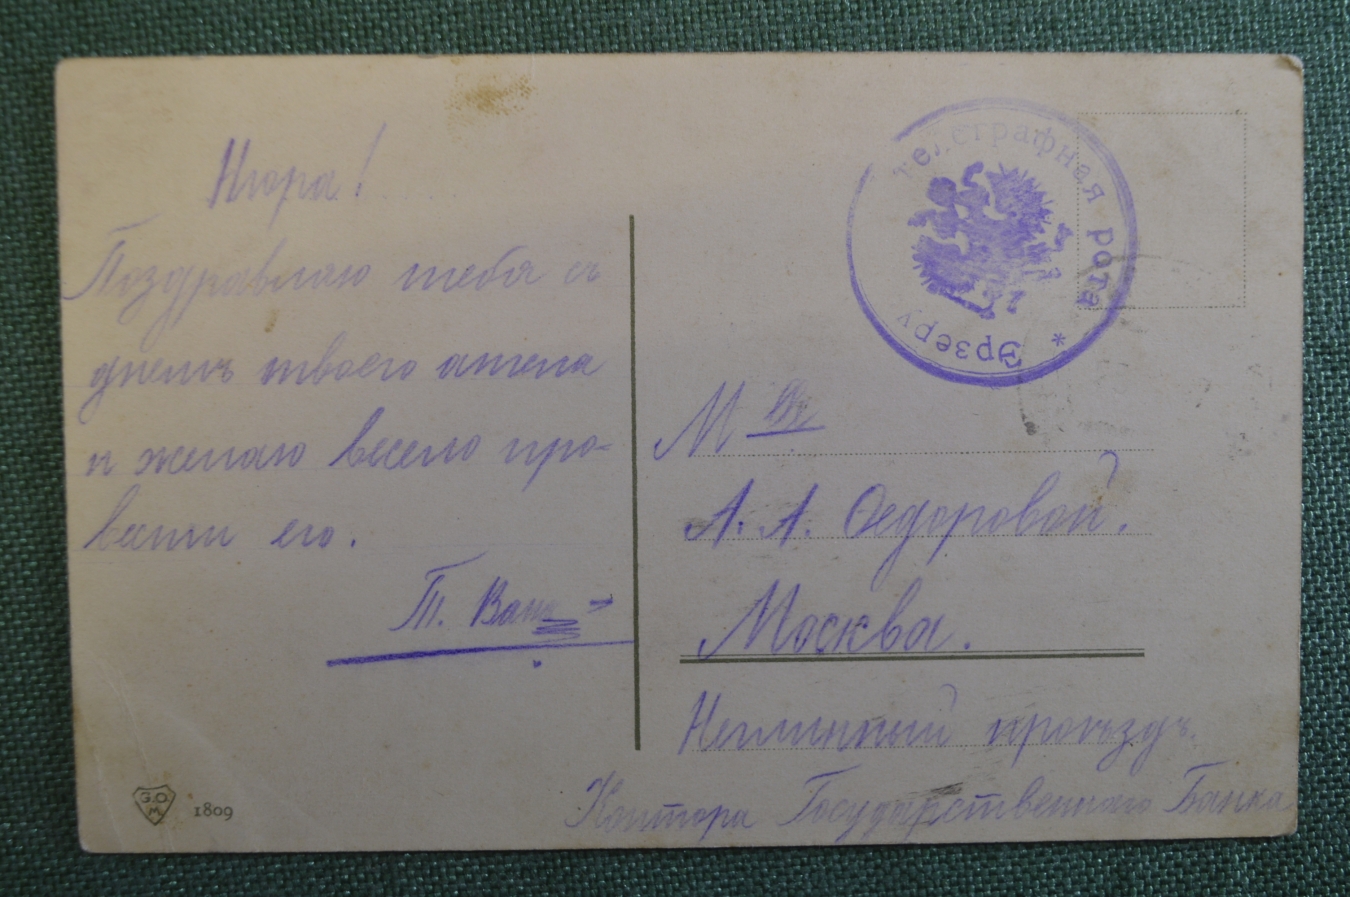 Нюра!
Поздравляю тебя съ
днемъ твоего ангела
и желаю весело про-
вести его.
Т. Ваня
телеграфная рота * Эрзеру
М
А. А. Федоровой.
Москва.
Неглинный проѣздъ.
Контора Государственнаго Банка
G.O.M
1809